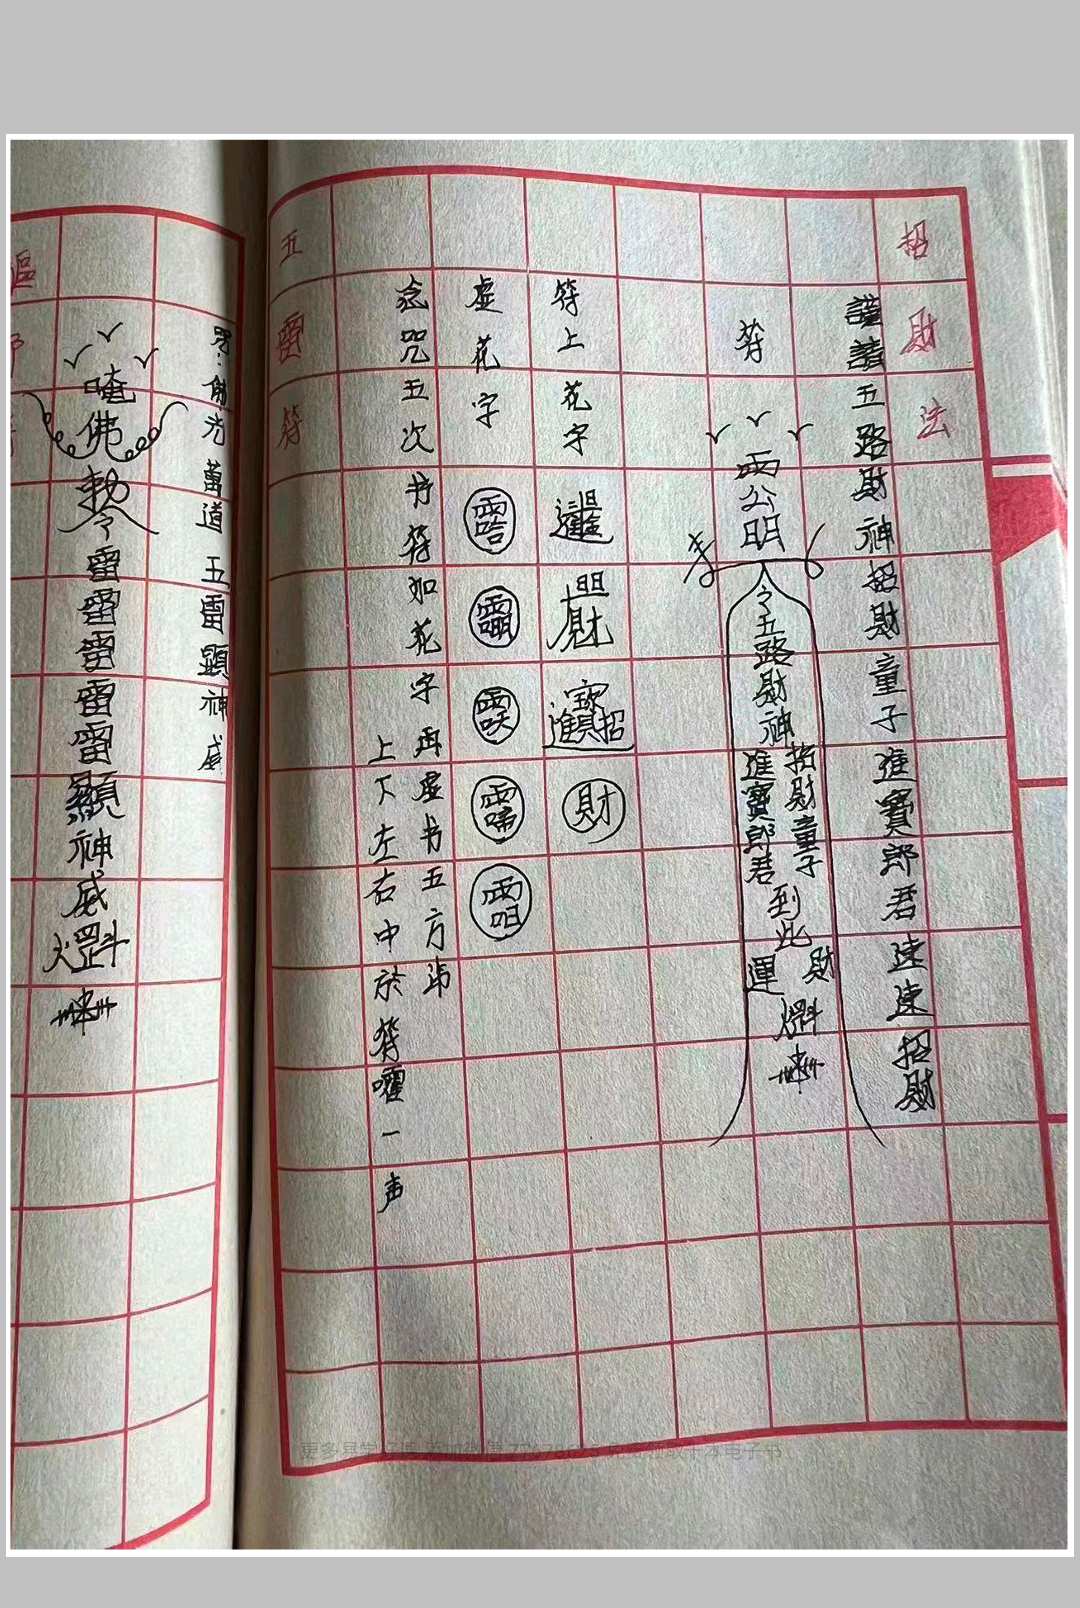 招財法
謹請五路財神招財童子進寶郎君速速招財
符
雨公明
令五路財神
招財童子
進寶郎君
到此
財
運
符上花字
財
虛花字
念咒五次书符如花字再虛书五方雷
上下左右中於符嚁一声
五雷符
咒:佛光萬道五雷顯神威
唵佛勅令雷雷雷雷雷顯神威